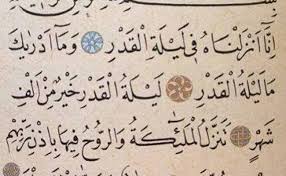 اِنَّٓا اَنْزَلْنَاهُ فٖى لَيْلَةِ الْقَدْرِ ۝ وَمَٓا اَدْرٰيكَ
مَا لَيْلَةُ الْقَدْرِ ۝ لَيْلَةُ الْقَدْرِ خَيْرٌ مِنْ اَلْفِ
شَهْرٍ ۝ تَنَزَّلُ الْمَلٰٓئِكَةُ وَالرُّوحُ فٖيهَا بِاِذْنِ رَبِّهِمْ